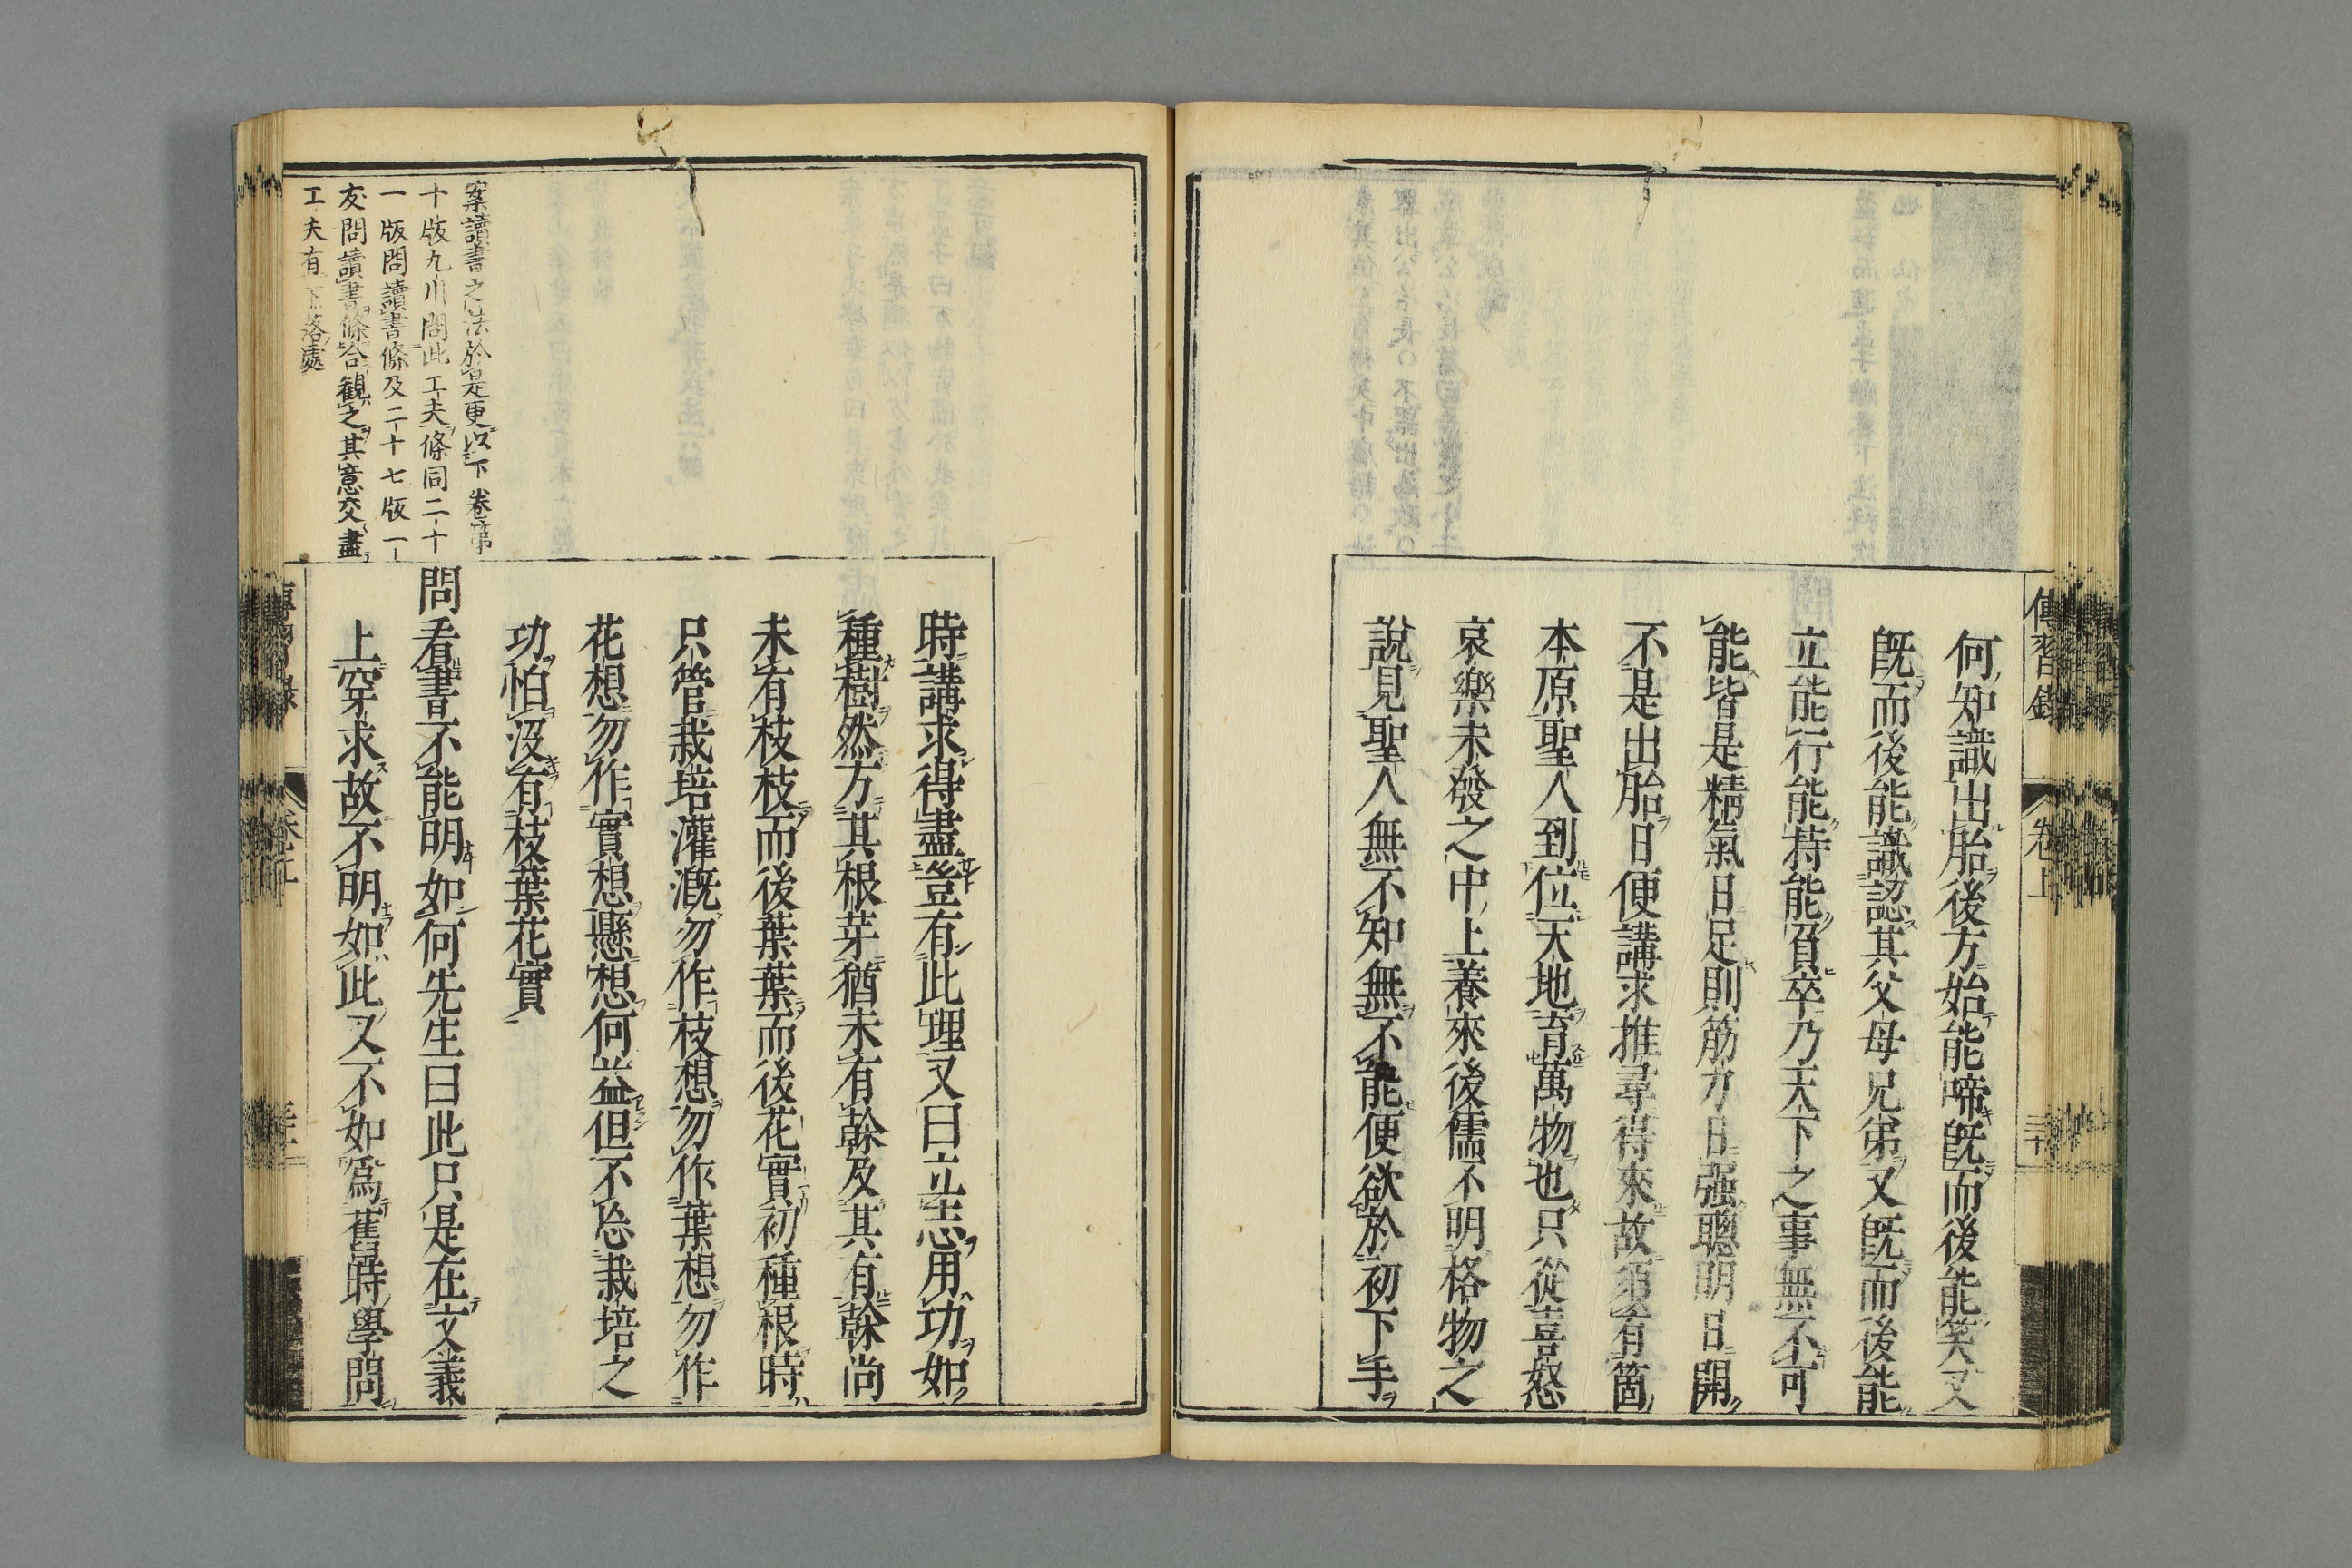 傳習錄 卷上
何知識出胎後方始能啼既而後能笑又
既而後能識認其父母兄弟又既而後能
立能行能持能負卒乃天下之事無不可
能皆是精氣日足則筋力日强聰明日開
不是出胎日便講求推尋得來故須有箇
本原聖人到位天地育萬物也只從喜怒
哀樂未發之中上養來後儒不明格物之
說見聖人無不知無不能便欲於初下手
時講求得盡豈有此理又曰立志用功如
種樹然方其根芽猶未有幹及其有幹尚
未有枝枝而後葉葉而後花實初種根時
只管栽培灌漑勿作枝想勿作葉想勿作
花想勿作實想懸想何益但不忘栽培之
功怕沒有枝葉花實
問看書不能明如何先生曰此只是在文義
上穿求故不明如此又不如爲舊時學問
案讀書之法於是更以下卷第
十版九川問此工夫條同二十
一版問讀書條及二十七版一
友問讀書條合觀之其意交盡
工夫有下落處